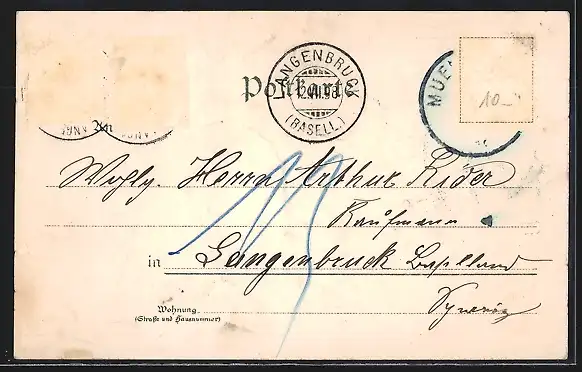 Postkarte
LANGENBRUCK
(BASELL.)
MUE
10 -
An
Wohlg. Herrn Arthur Rider
Kaufmann
in Langenbruck Baselland
Wohnung
(Straße und Hausnummer)